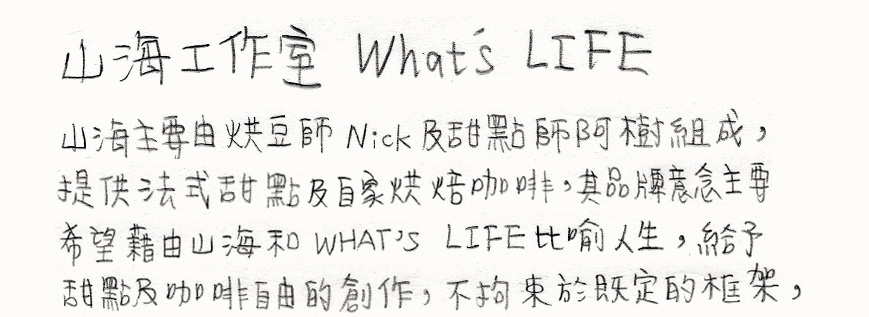 山海工作室 What's LIFE
山海主要由烘豆師 Nick 及甜點師阿樹組成，
提供法式甜點及自家烘焙咖啡，其品牌意念主要
希望藉由山海和 WHAT'S LIFE 比喻人生，給予
甜點及咖啡自由的創作，不拘束於既定的框架，